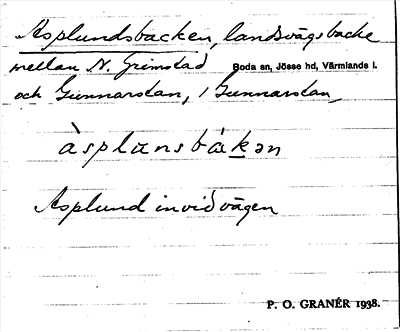 Asplundsbacken, landsvägsbacke
mellan N. Grimstad Boda sn, Jösse hd, Värmlands l.
och Gunnarstan, i Gunnarstan
àsplɯnsbákən
Asplund invid vägen
P. O. GRANÉR 1938.